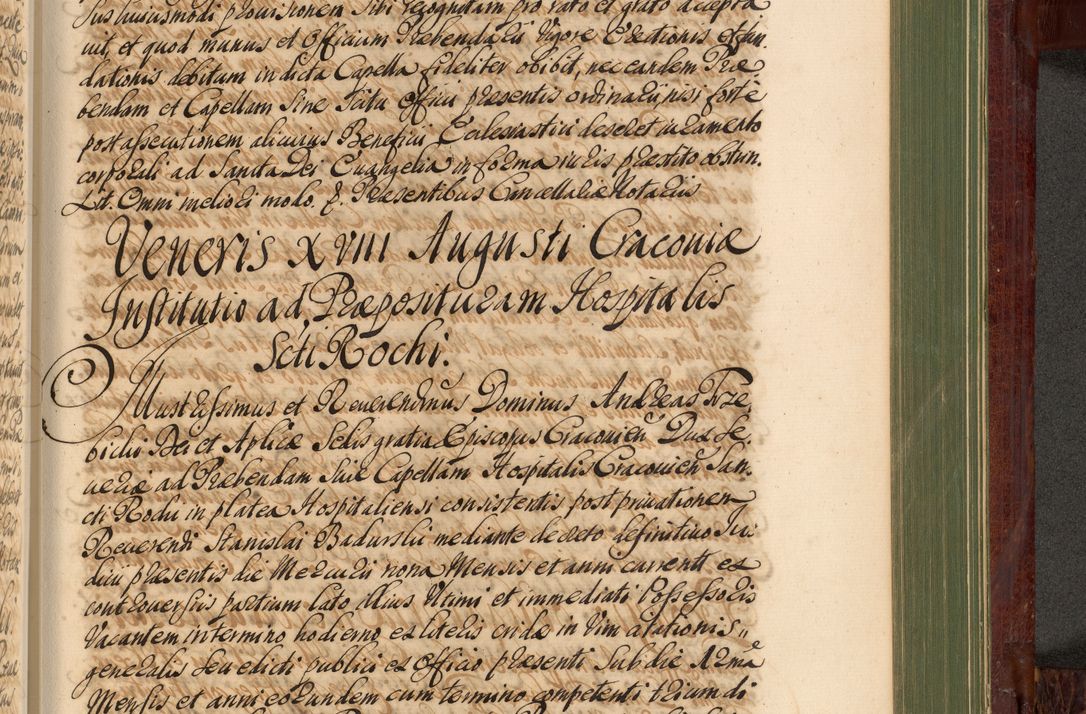 Jus huiusmodi provisionem sibi recognitam pro rato et grato accepta
uit, et quod munus et Officium Præbendalis Vigore Erectionis et fun.
dationis debitum in dicta Capella fideliter obibit, nec eandem Præ
bendam et Capellam sine scitu Officii præsentis ordinarii nisi forte
post assecutionem alicuius Beneficii Ecclesiastici deseret iuramento
corporali ad Sancta Dei Euangelia in forma iuris præstito obstrin.
Lit. Omni meliori modo. p. Præsentibus Cancellariæ Notariis
Veneris XVIII Augusti Cracouiæ
Institutio ad Præposituram Hospitalis
Scti Rochi.
Illustrissimus et Reuerendnus Dominus Andreas Trze.
bicki Dei et Aplicæ Sedis gratia Episcopus Cracouien Dux Se.
ueriæ ad Præbendam siue Capellam Hospitalis Cracouien San.
cti Rochi in platea Hospitaliensi consistentis post priuationem
Reuerendi Stanislai Badurski mediante decreto definitiuo Iu.
dicii præsentis die Mercurii nona Mensis et anni currentt ex
controuersiis partium lato, illius Ultimi et immediati Possessoris
Vacantem in termino hodierno ex literis cridæ in Vim citationis
generalis seu edicti publici ex Officio præsenti sub die
Mensis et anni eorundem cum termino competenti trium di